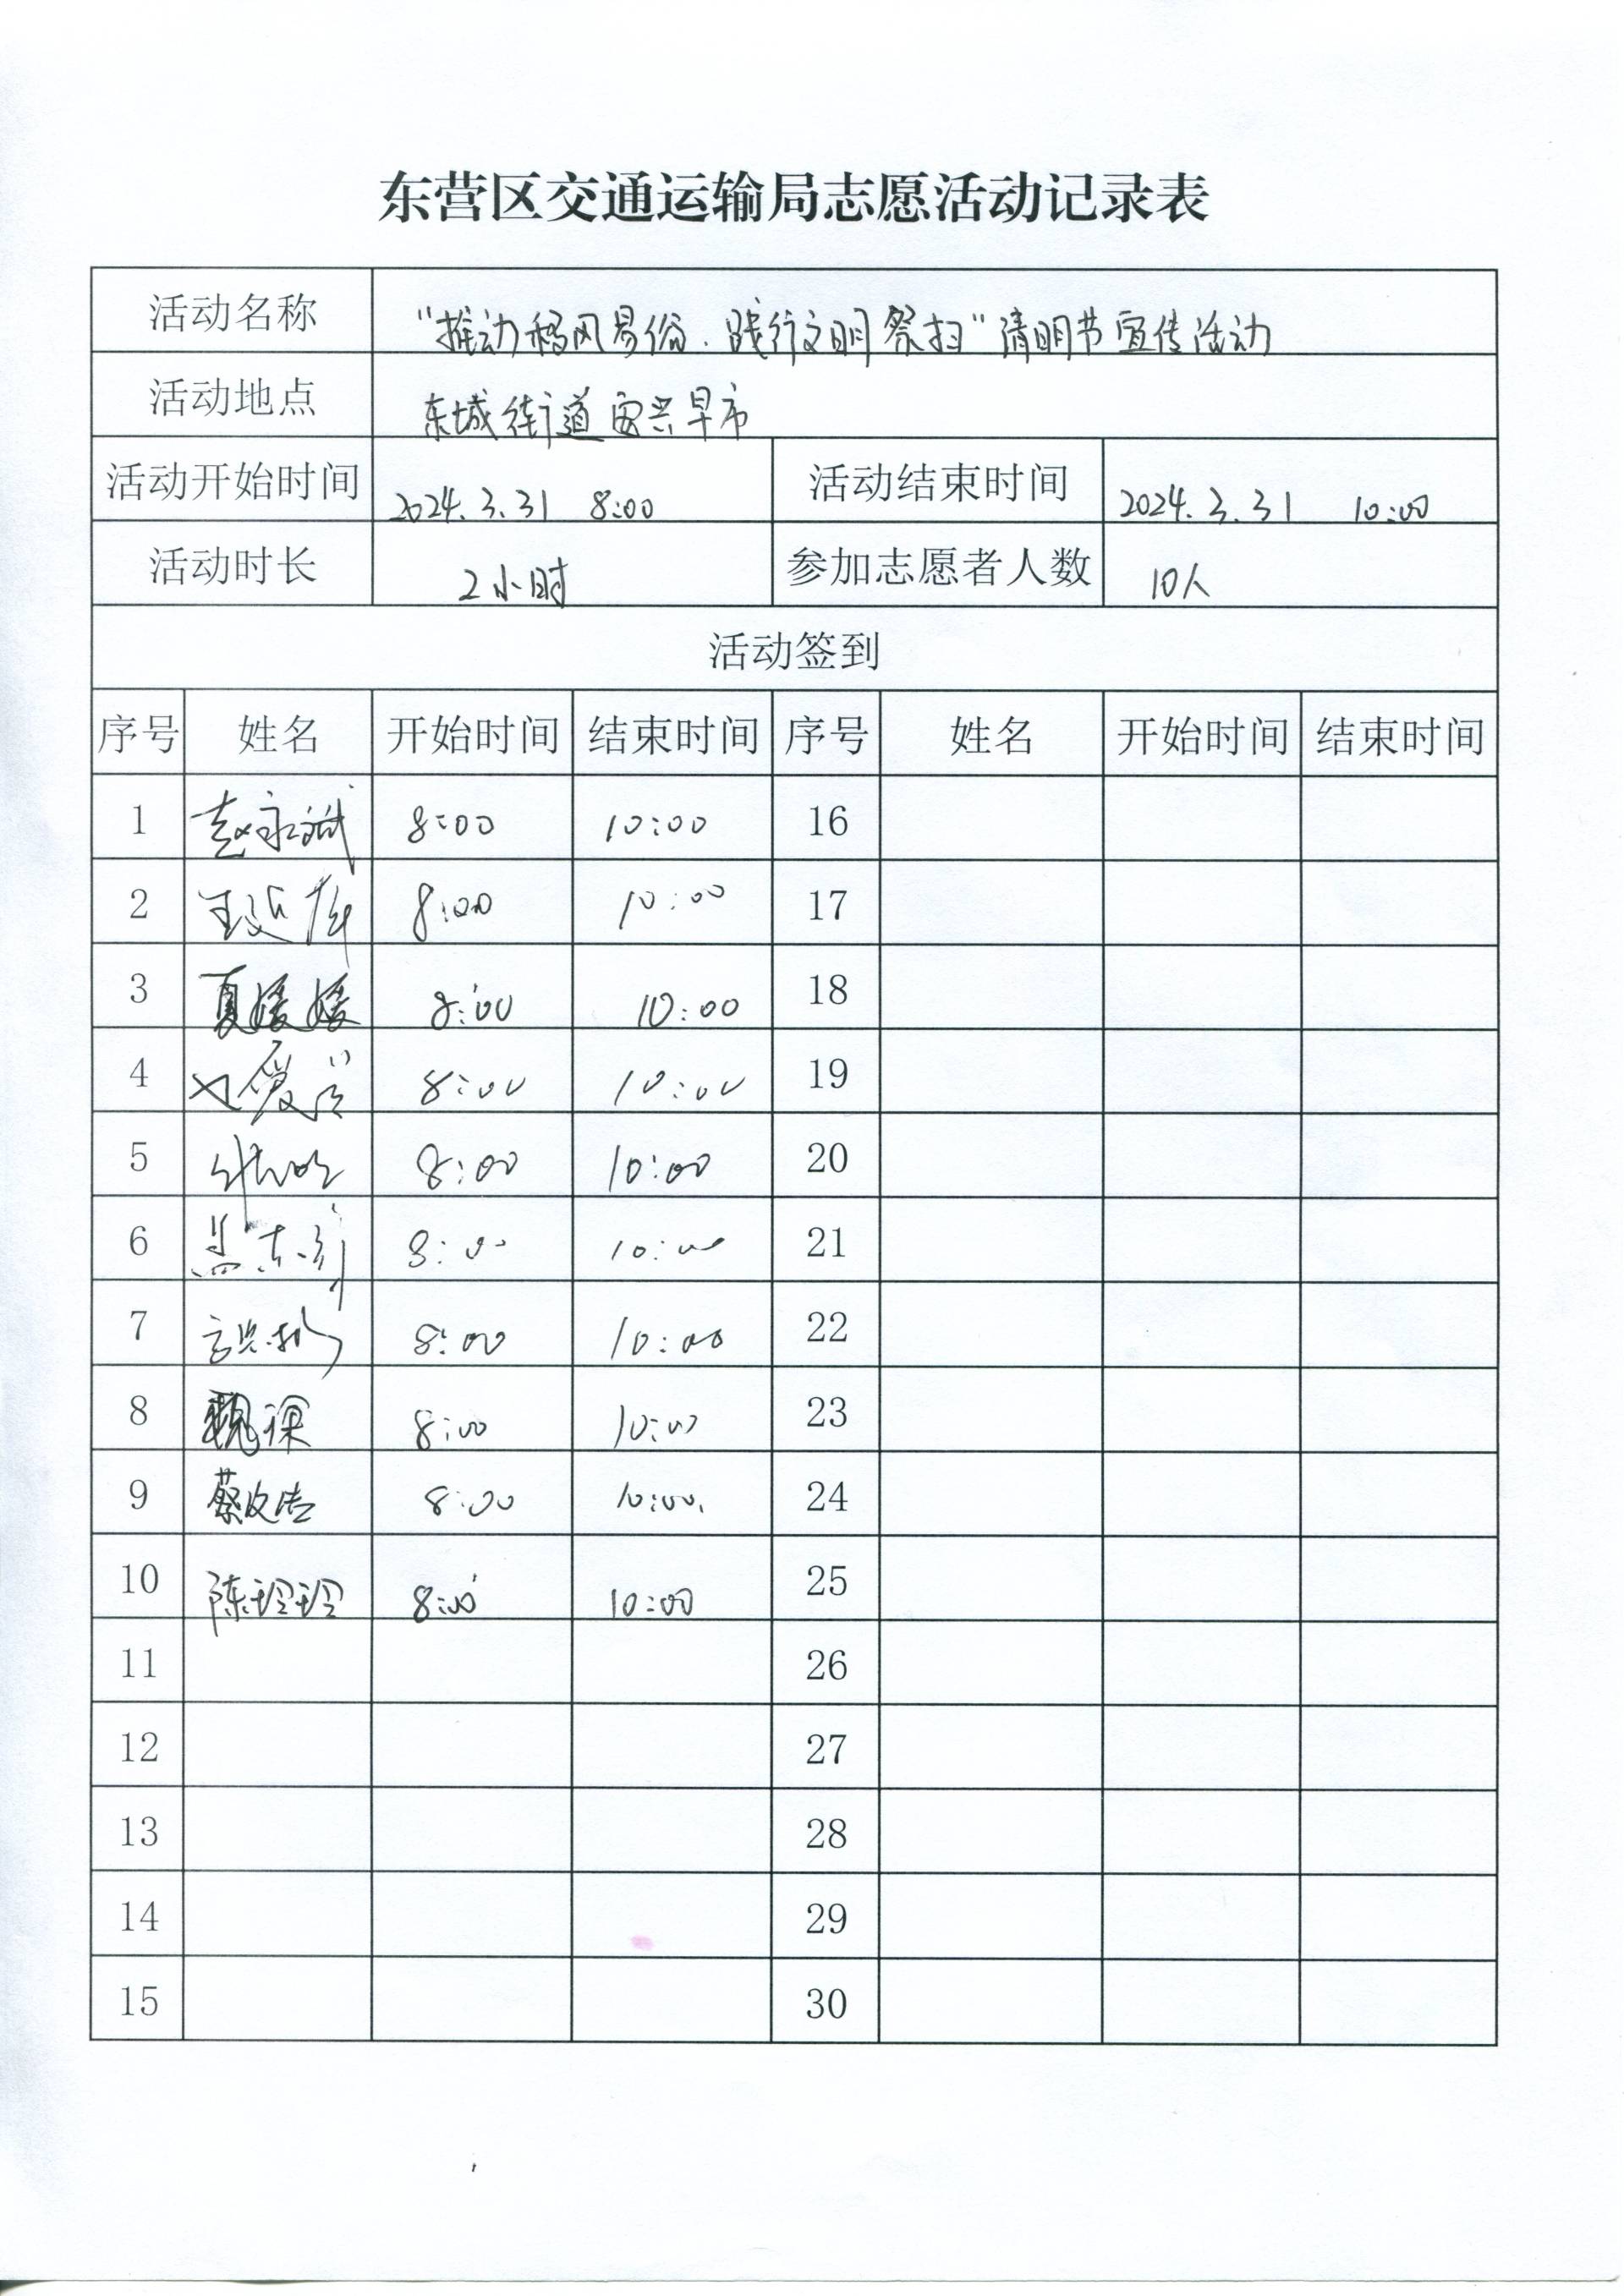 东营区交通运输局志愿活动记录表
活动名称 "推动移风易俗.践行文明祭扫"清明节宣传活动
活动地点 东城街道安兴早市
活动开始时间 2024.3.31 8:00 活动结束时间 2024.3.31 10:00
活动时长 2小时 参加志愿者人数 10人
活动签到
序号 姓名 开始时间 结束时间 序号 姓名 开始时间 结束时间
1 赵永斌 8:00 10:00 16
2 8:00 10:00 17
3 夏媛媛 8:00 10:00 18
4 8:00 10:00 19
5 8:00 10:00 20
6 8:00 10:00 21
7 8:00 10:00 22
8 8:00 10:00 23
9 8:00 10:00 24
10 陈玲玲 8:00 10:00 25
11 26
12 27
13 28
14 29
15 30